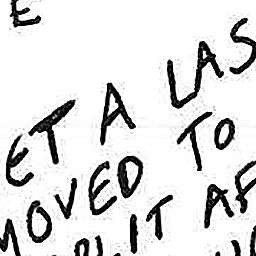 E
ET A LAS
MOVED TO
LIT AF